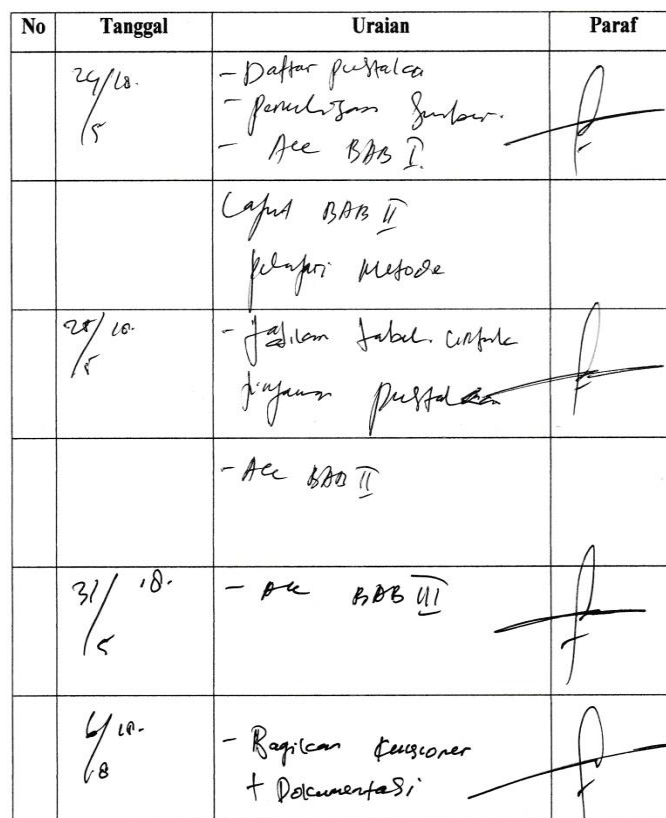 No Tanggal Uraian Paraf
24/18.
5
- Daftar pustaka
- penulisan Sumber.
- Acc BAB I.
Lanjut BAB II
pelajari Metode
28/18.
5
- Jadikan tabel. untuk
tinjauan pustaka
- Acc BAB II
31/18.
5
- Acc BAB III
6/18.
8
- Bagikan Kuesioner
+ Dokumentasi